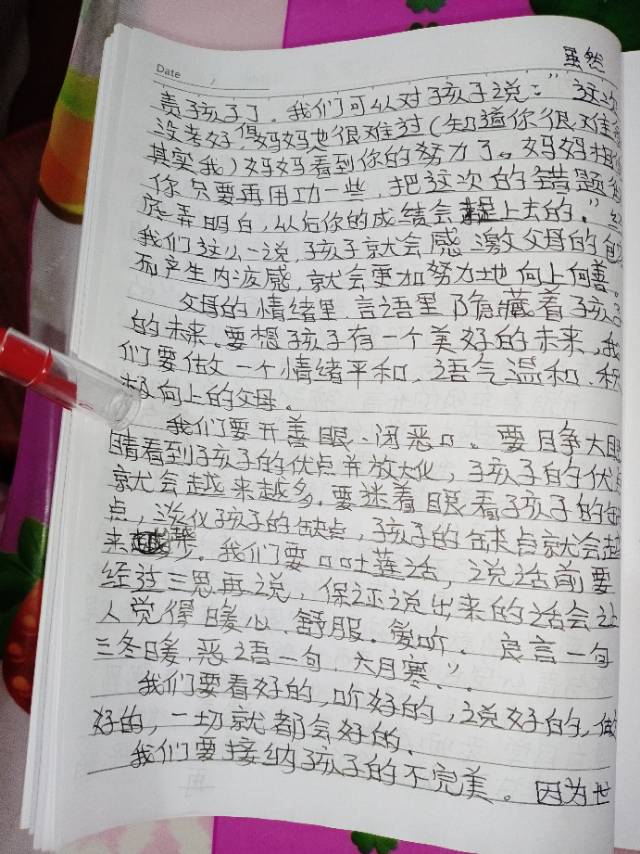 Date
虽然
责孩子了。我们可以对孩子说："这次
没考好,但妈妈也很难过(知道你很难
其实我)妈妈看到你的努力了。妈妈相
你只要再用功一些,把这次的错题
底弄明白,从后你的成绩会赶上去的。"
我们这么一说,孩子就会感激父母的
而产生内疚感,就会更加努力地向上向善。
父母的情绪里,言语里隐藏着孩子
的未来。要想孩子有一个美好的未来,我
们要做一个情绪平和,语气温和,积
极向上的父母。
我们要开善眼、闭恶口。要睁大眼
睛看到孩子的优点并放大化,孩子的优点
就会越来越多。要迷着眼看孩子的缺
点,淡化孩子的缺点,孩子的缺点就会越
来越少。我们要口吐莲话,说话前要
经过三思再说,保证说出来的话会让
人觉得暖心、舒服。爱听。良言一句
三冬暖,恶语一句,六月寒"。
我们要看好的,听好的,说好的,做
好的,一切就都会好的。
我们要接纳孩子的不完美。因为世